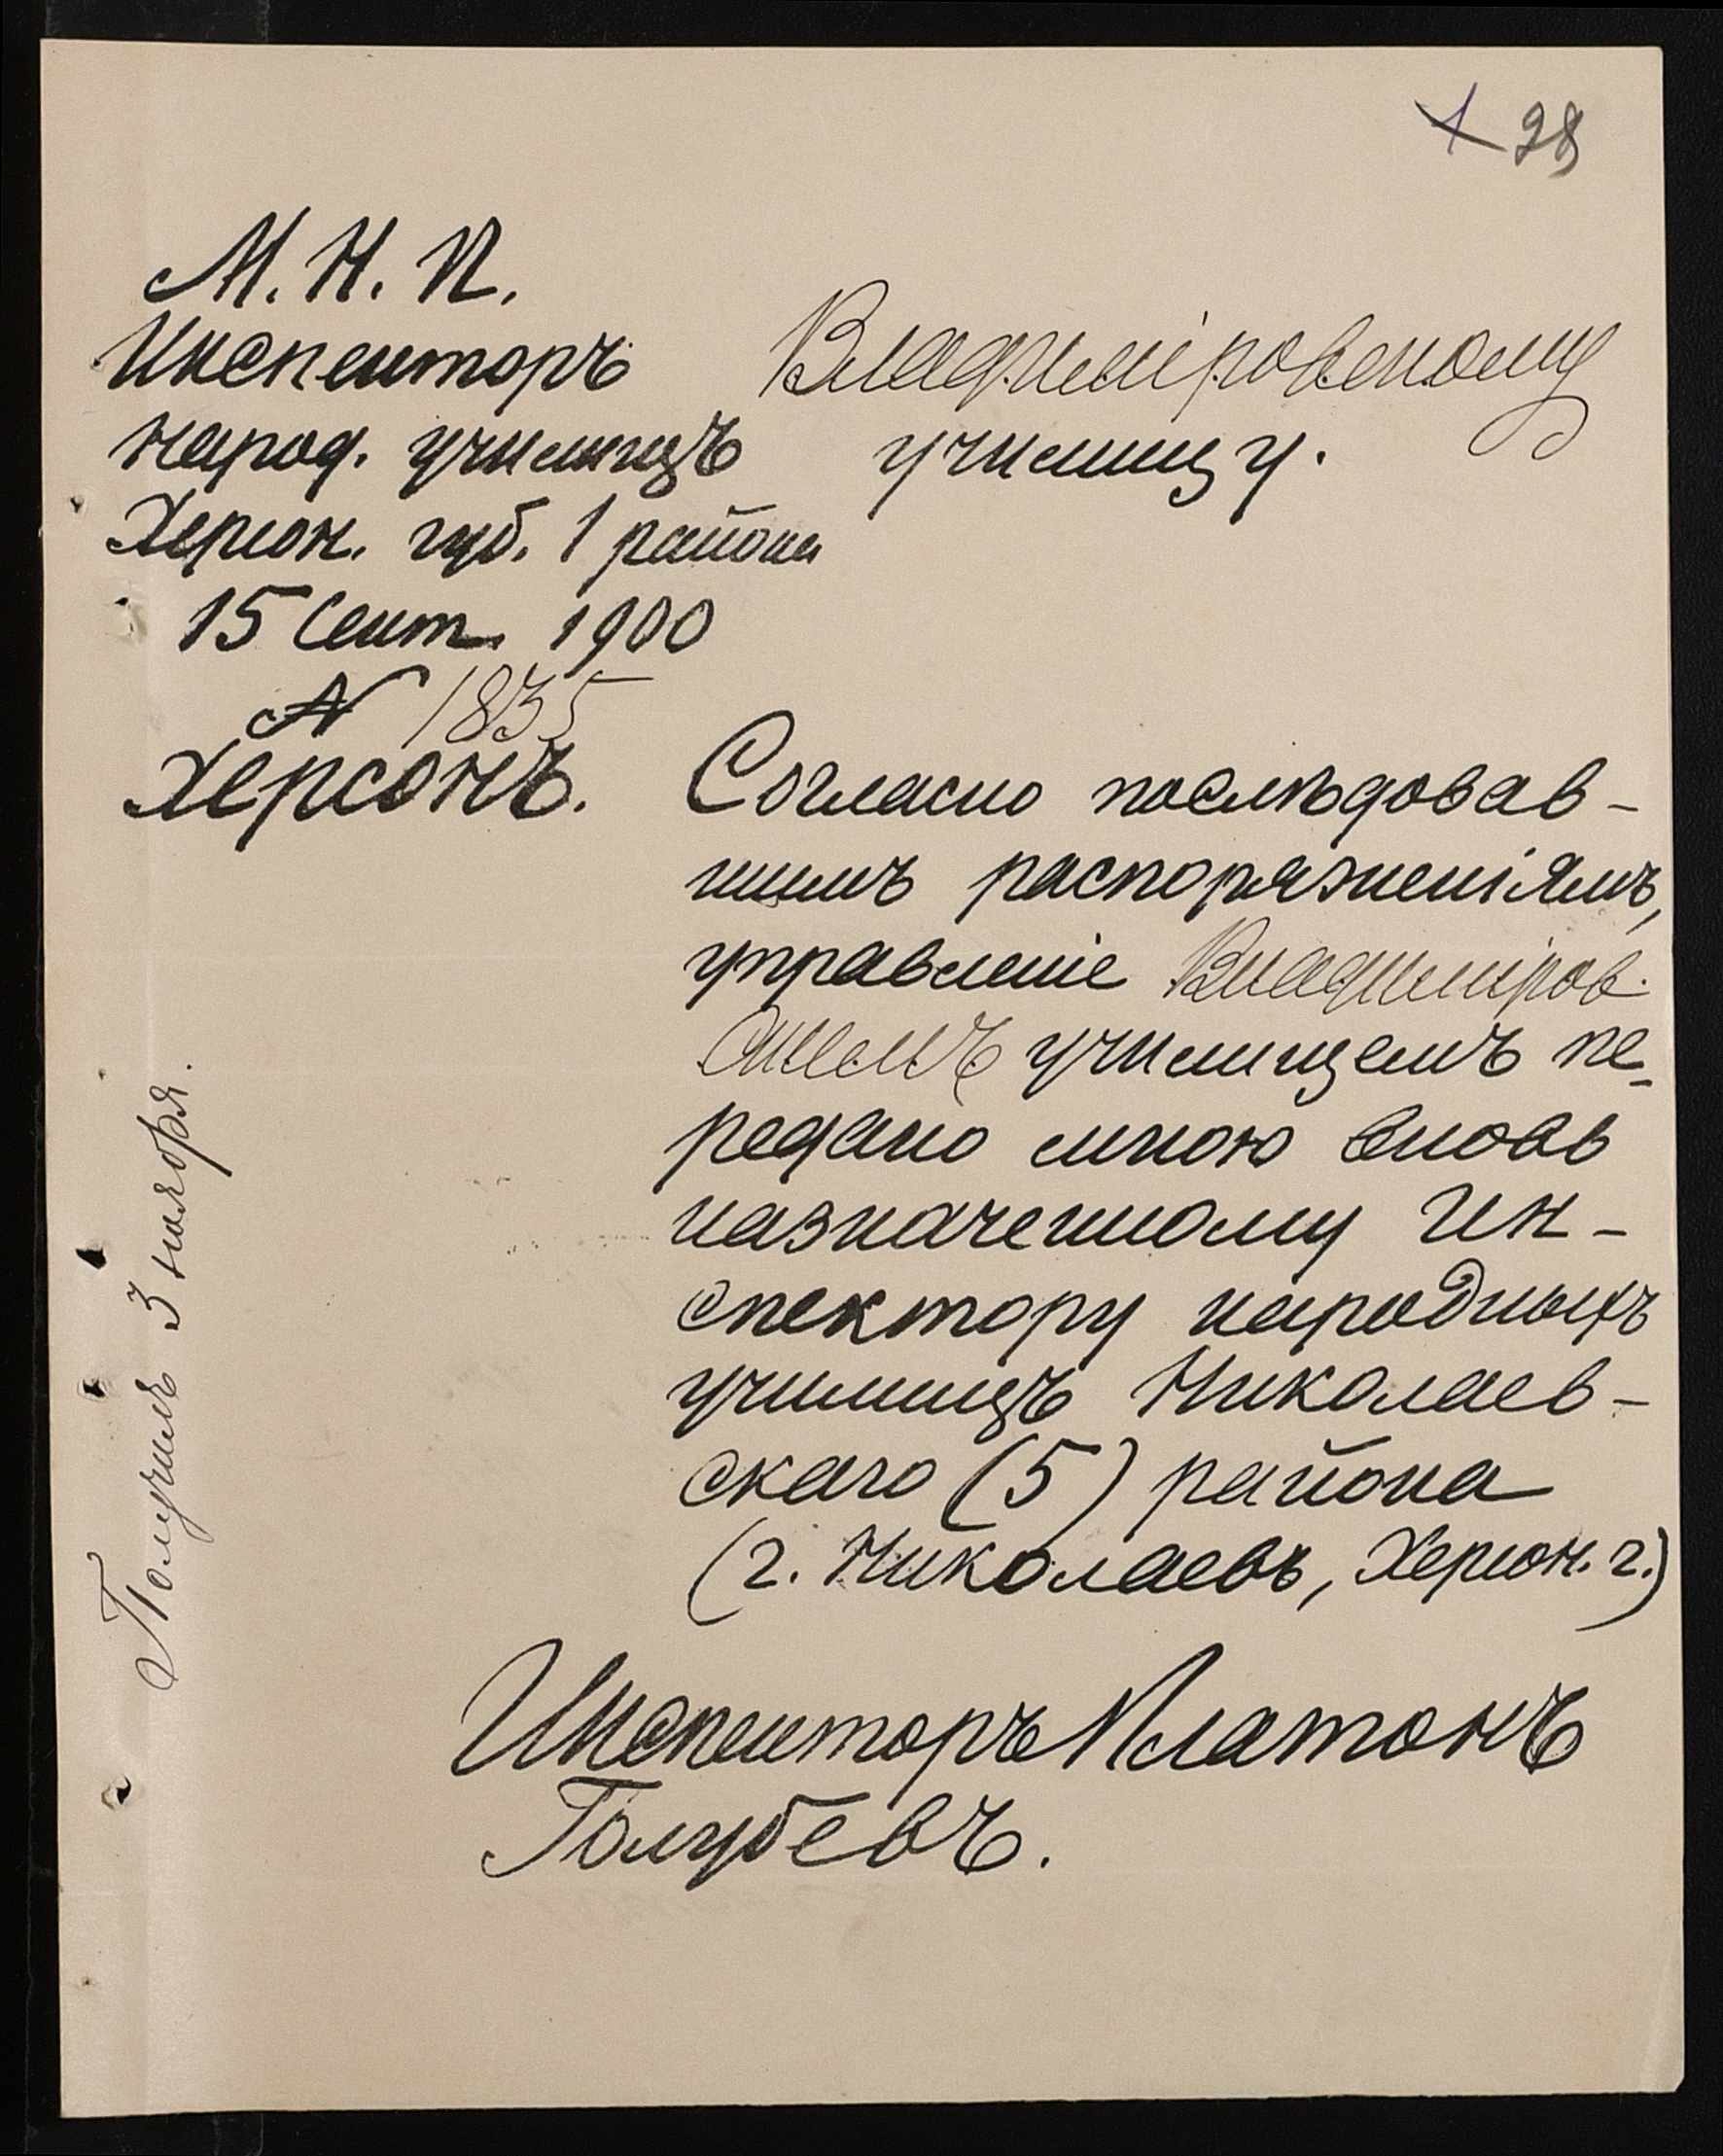 1 28
М. Н. П.
Инспекторъ
народ. училищъ
Херсон. губ. 1 района
15 Сент. 1900
№ 1835
Херсонъ.
Владиміровскому
училищу.
Согласно послѣдовав-
шимъ распоряженіямъ,
управленіе Владиміров-
скимъ училищемъ пе-
редано мною вновь
назначенному Ин-
спектору народныхъ
училищъ Николаев-
скаго (5) района
(г. Николаевъ, Херсон. г.)
Инспекторъ Платонъ
Голубевъ.
Получилъ 3 ноября.